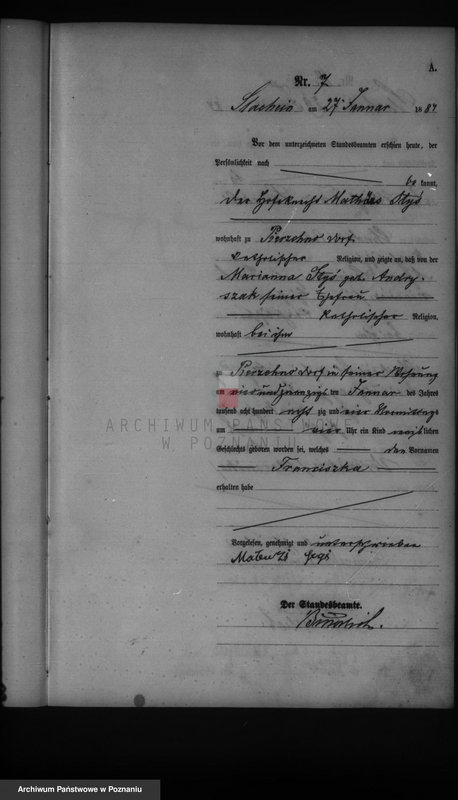 A.
Nr. 7
am 27 Januar 1884
Vor dem unterzeichneten Standesbeamten erschien heute, der
Persönlichkeit nach
be kannt,
der Hofeknecht Mathäus
wohnhaft zu Pierzchno Dorf
katholischer Religion, und zeigte an, daß von der
Marianna geb. Andry-
szak seiner Ehefrau
katholischer Religion,
wohnhaft bei ihm
zu Pierzchno Dorf in seiner Wohnung
am vierundzwanzigsten Januar des Jahres
tausend acht hundert acht zig und vier Vormittags
um vier Uhr ein Kind weiblichen
Geschlechts geboren worden sei, welches den Vornamen
Franciszka
erhalten habe
Vorgelesen, genehmigt und unterschrieben
Der Standesbeamte.
ARCHIWUM PAŃSTWOWE
W POZNANIU
Archiwum Państwowe w Poznaniu